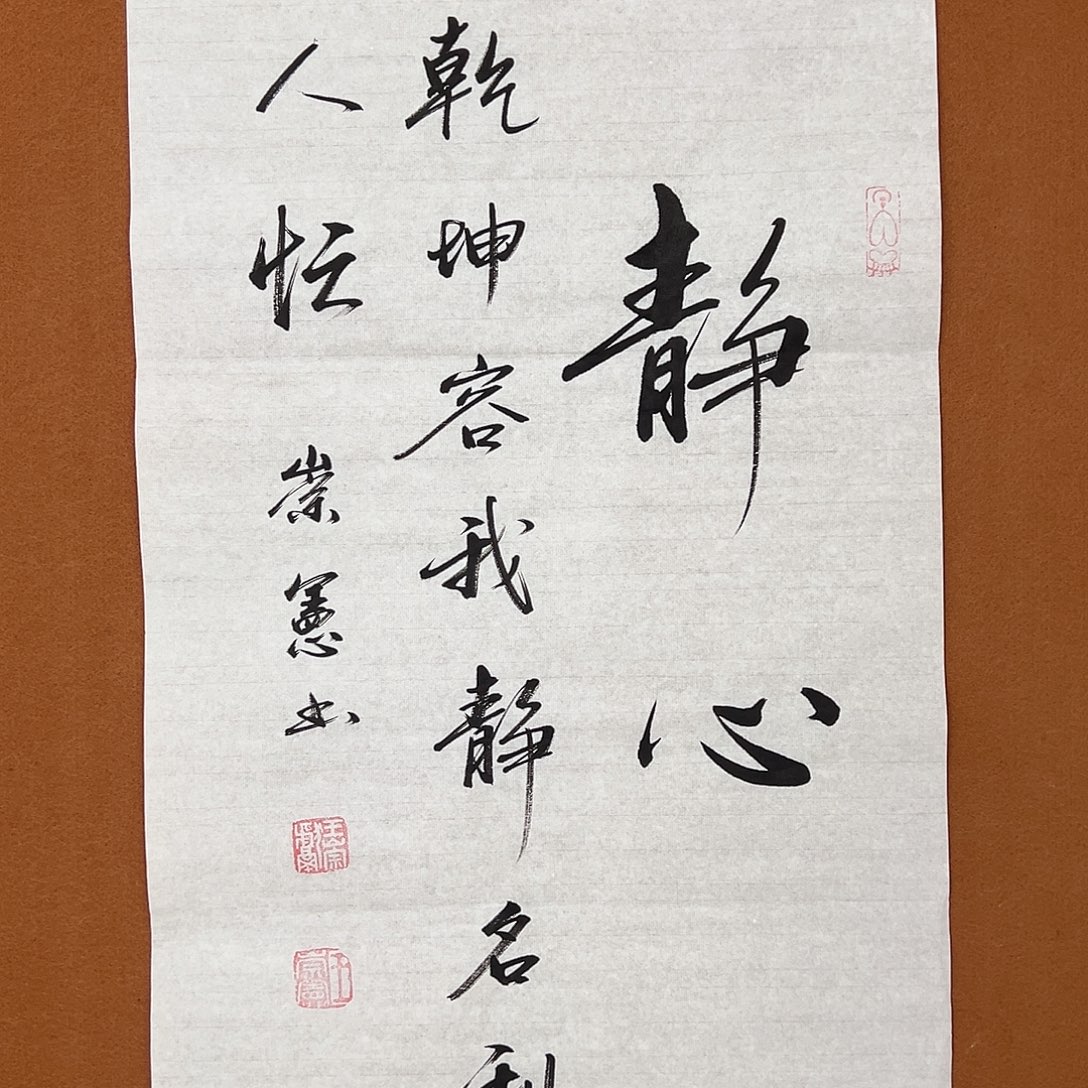 静心
乾坤容我静名利
人忙
崇憲书